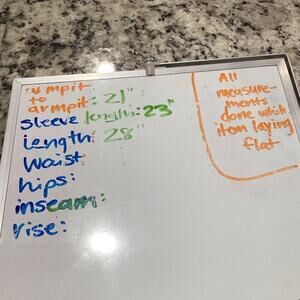 armpit
to
armpit: 21"
Sleeve length: 23"
Length: 28"
Waist
hips:
inseam:
rise:
All
measure-
ments
done while
item laying
flat